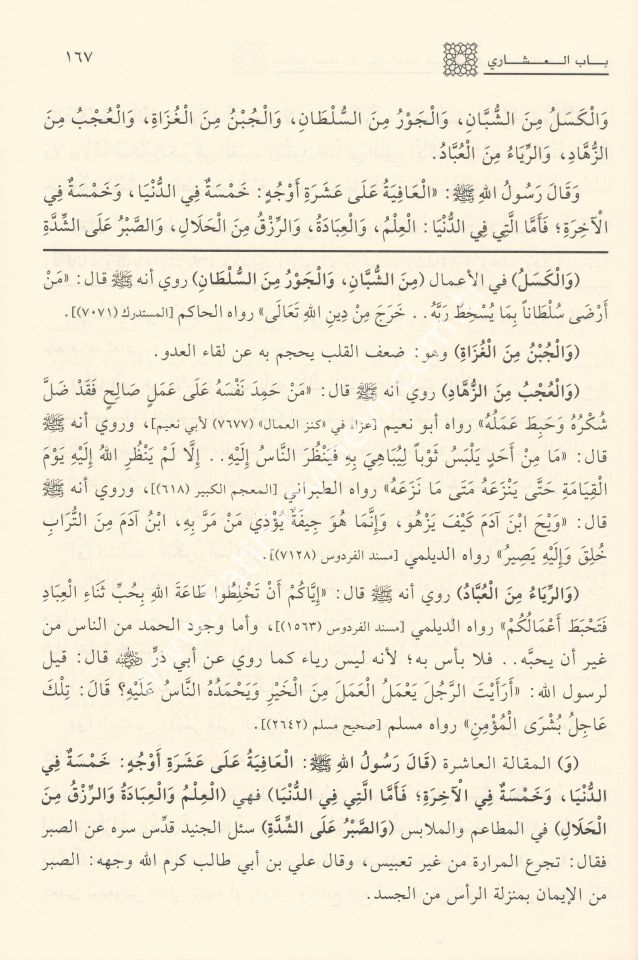 باب العشاري
١٦٧
وَالْكَسَلُ مِنَ الشُّبَّانِ، وَالْجَوْرُ مِنَ السُّلْطَانِ، وَالْجُبْنُ مِنَ الْغُزَاةِ، وَالْعُجْبُ مِنَ
الزُّهَّادِ، وَالرِّيَاءُ مِنَ الْعُبَّادُ.
وَقَالَ رَسُولُ اللهِ ﷺ: «الْعَافِيَةُ عَلَى عَشَرَةِ أَوْجُهٍ: خَمْسَةٌ فِي الدُّنْيَا، وَخَمْسَةٌ فِي
الْآخِرَةِ؛ فَأَمَّا الَّتِي فِي الدُّنْيَا: الْعِلْمُ، وَالْعِبَادَةُ، وَالرِّزْقُ مِنَ الْحَلَالِ، وَالصَّبْرُ عَلَى الشِّدَّةِ
(وَالْكَسَلُ) في الأعمال (مِنَ الشُّبَّانِ، وَالْجَوْرُ مِنَ السُّلْطَانِ) روي أنه ﷺ قال: «مَنْ
أَرْضَى سُلْطَاناً بِمَا يُسْخِطُ رَبَّهُ.. خَرَجَ مِنْ دِينِ اللهِ تَعَالَى» رواه الحاكم [المستدرك (٧٠٧١)].
(وَالْجُبْنُ مِنَ الْغُزَاةِ) وهو: ضعف القلب يحجم به عن لقاء العدو.
(وَالْعُجْبُ مِنَ الزُّهَّادِ) روي أنه ﷺ قال: «مَنْ حَمِدَ نَفْسَهُ عَلَى عَمَلٍ صَالِحٍ فَقَدْ ضَلَّ
شُكْرُهُ وَحَبِطَ عَمَلُهُ» رواه أبو نعيم [عزاه في «كنز العمال» (٧٦٧٧) لأبي نعيم]، وروي أنه ﷺ
قال: «مَا مِنْ أَحَدٍ يَلْبَسُ ثَوْباً لِيُبَاهِيَ بِهِ فَيَنْظُرَ النَّاسُ إِلَيْهِ.. إِلَّا لَمْ يَنْظُرِ اللهُ إِلَيْهِ يَوْمَ
الْقِيَامَةِ حَتَّى يَنْزِعَهُ مَتَى مَا نَزَعَهُ» رواه الطبراني [المعجم الكبير (٦١٨)]، وروي أنه ﷺ
قال: «وَيْحَ ابْنَ آدَمَ كَيْفَ يَزْهُو، وَإِنَّمَا هُوَ جِيفَةٌ يُؤْذِي مَنْ مَرَّ بِهِ، ابْنُ آدَمَ مِنَ التُّرَابِ
خُلِقَ وَإِلَيْهِ يَصِيرُ» رواه الديلمي [مسند الفردوس (٧١٢٨)].
(وَالرِّيَاءُ مِنَ الْعُبَّادُ) روي أنه ﷺ قال: «إِيَّاكُمْ أَنْ تَخْلِطُوا طَاعَةَ اللهِ بِحُبِّ ثَنَاءِ الْعِبَادِ
فَتَحْبَطَ أَعْمَالُكُمْ» رواه الديلمي [مسند الفردوس (١٥٦٣)]، وأما وجود الحمد من الناس من
غير أن يحبَّه.. فلا بأس به؛ لأنه ليس رياء كما روي عن أبي ذرٍّ ﵁ قال: قيل
لرسول الله: «أَرَأَيْتَ الرَّجُلَ يَعْمَلُ الْعَمَلَ مِنَ الْخَيْرِ وَيَحْمَدُهُ النَّاسُ عَلَيْهِ؟ قَالَ: تِلْكَ
عَاجِلُ بُشْرَى الْمُؤْمِنِ» رواه مسلم [صحيح مسلم (٢٦٤٢)].
(وَ) المقالة العاشرة (قَالَ رَسُولُ اللهِ ﷺ: الْعَافِيَةُ عَلَى عَشَرَةِ أَوْجُهٍ: خَمْسَةٌ فِي
الدُّنْيَا، وَخَمْسَةٌ فِي الْآخِرَةِ؛ فَأَمَّا الَّتِي فِي الدُّنْيَا) فهي (الْعِلْمُ وَالْعِبَادَةُ وَالرِّزْقُ مِنَ
الْحَلَالِ) في المطاعم والملابس (وَالصَّبْرُ عَلَى الشِّدَّةِ) سئل الجنيد قدّس سره عن الصبر
فقال: تجرع المرارة من غير تعبيس، وقال علي بن أبي طالب كرم الله وجهه: الصبر
من الإيمان بمنزلة الرأس من الجسد.